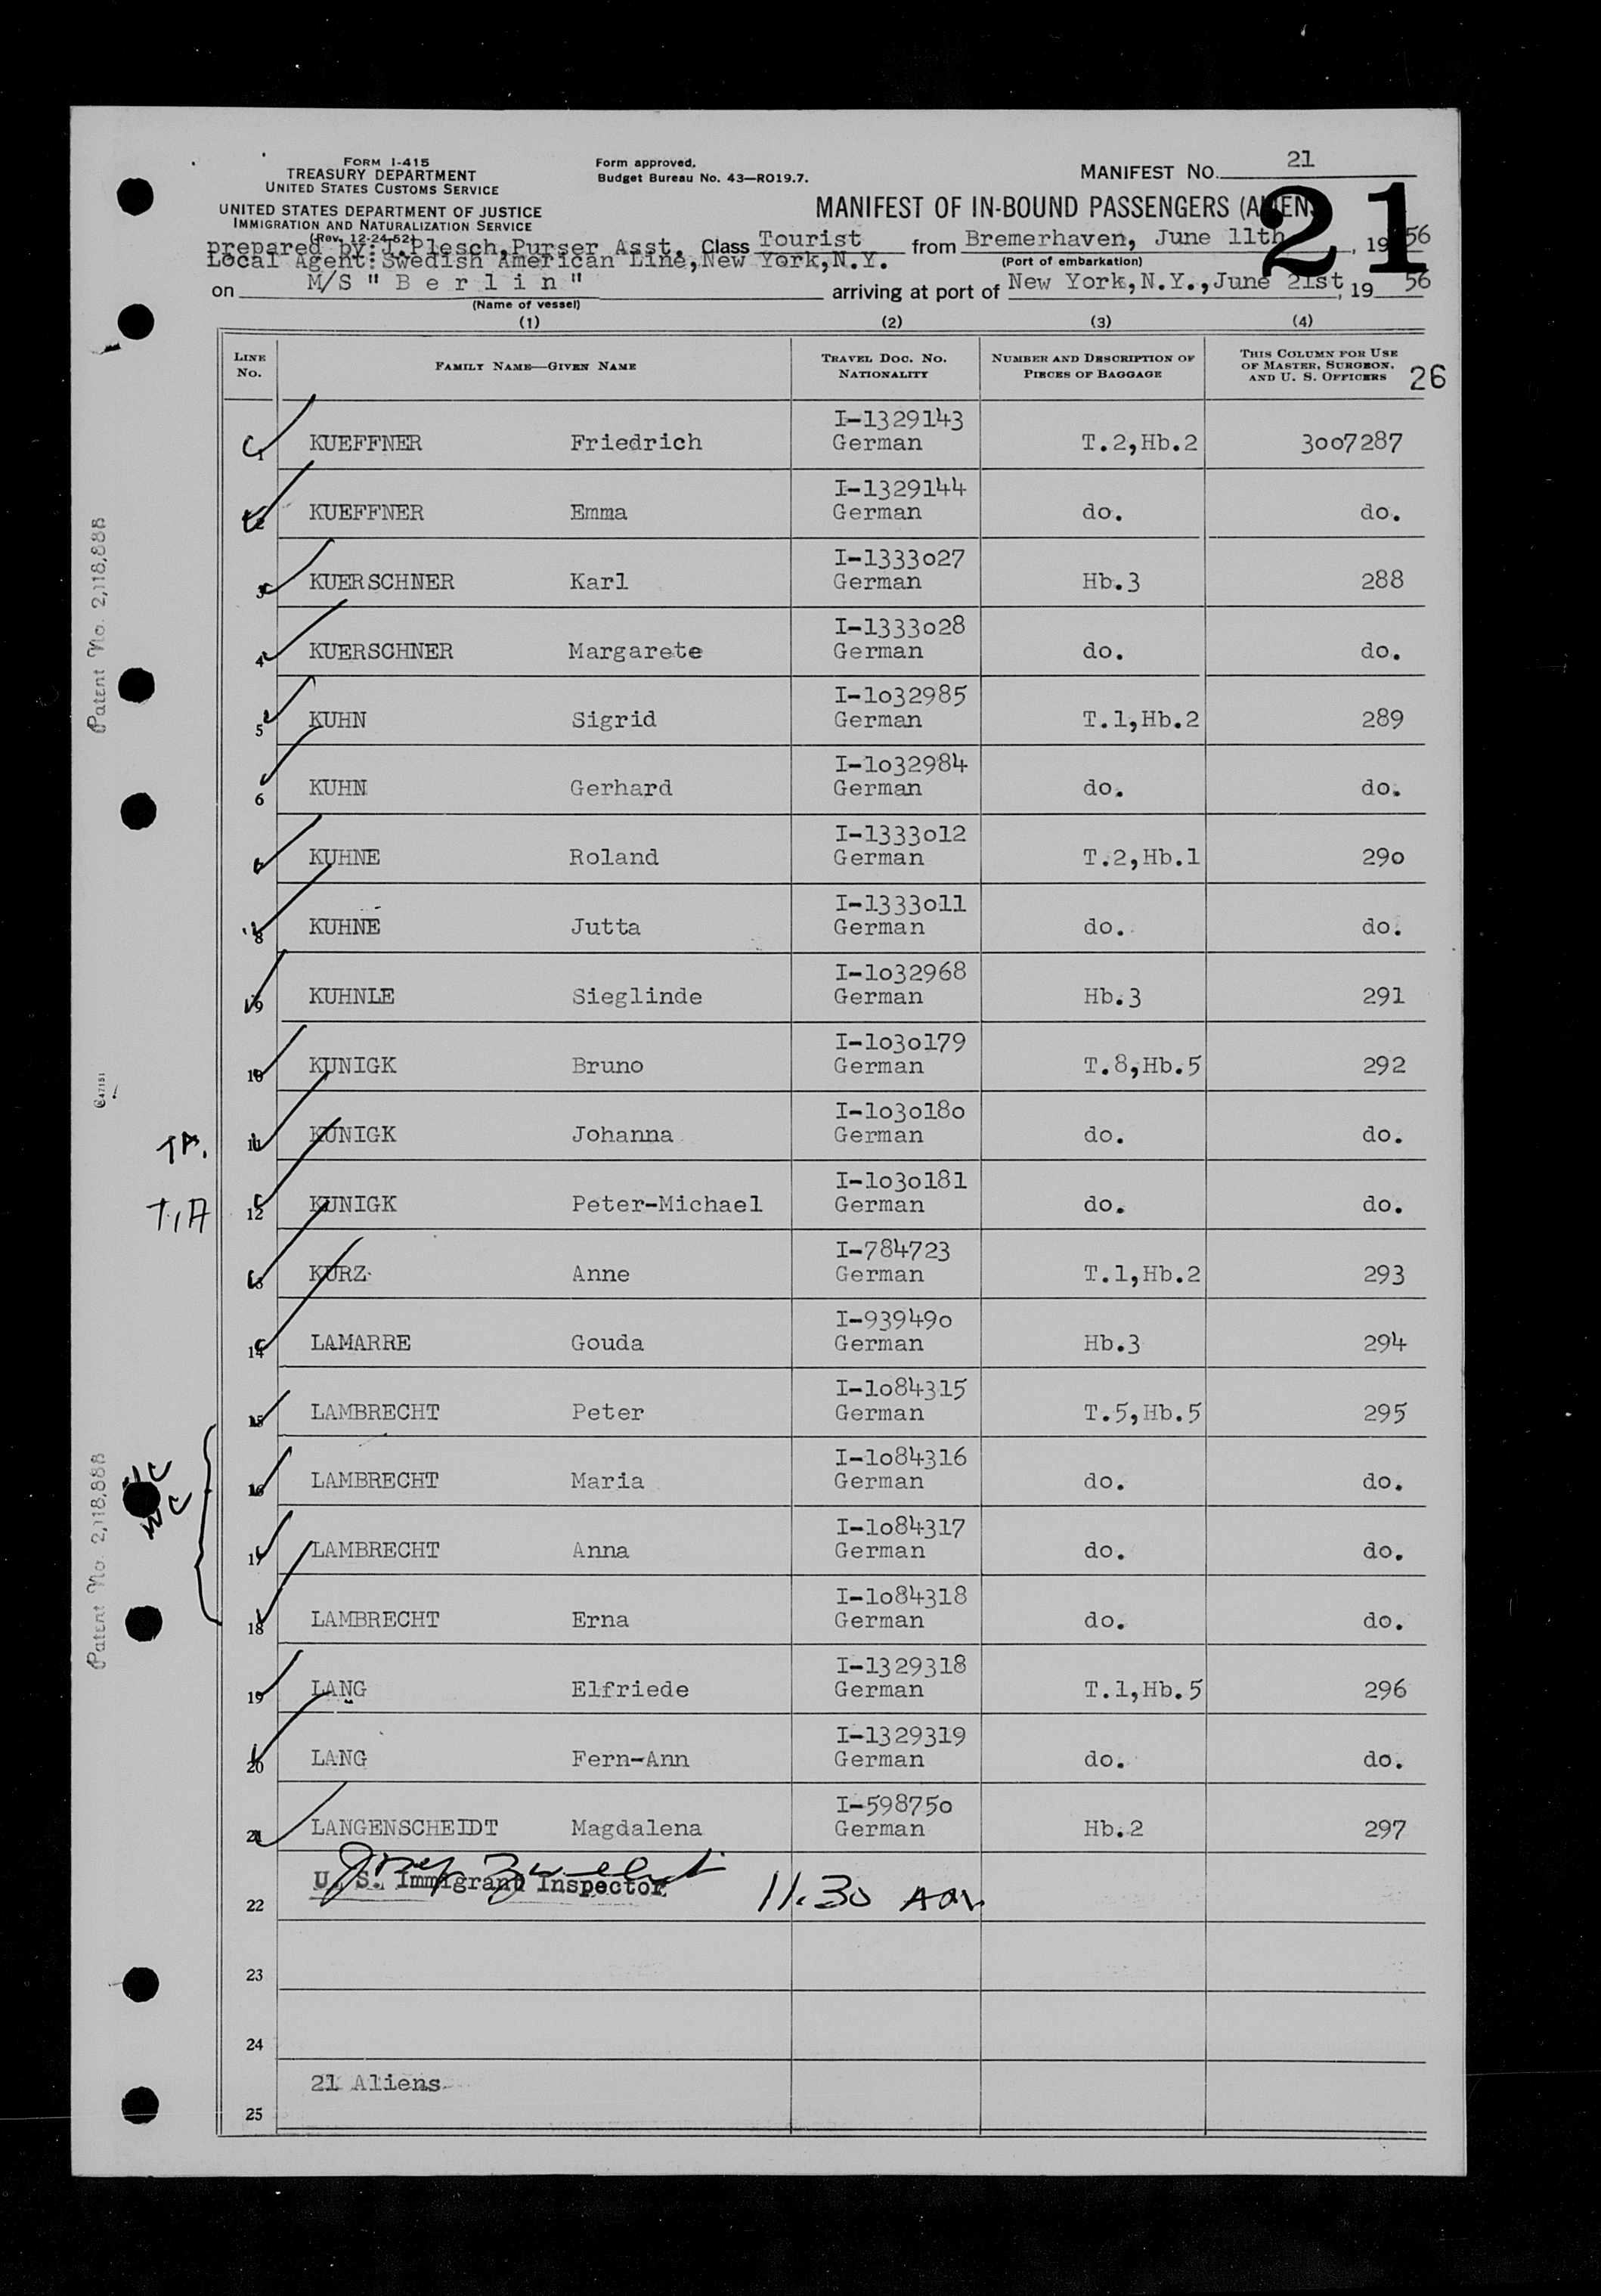 FORM I-415
TREASURY DEPARTMENT
UNITED STATES CUSTOMS SERVICE
UNITED STATES DEPARTMENT OF JUSTICE
IMMIGRATION AND NATURALIZATION SERVICE
(Rev. 12-24-52)
Form approved.
Budget Bureau No. 43—RO19.7.
MANIFEST NO. 21
21
MANIFEST OF IN-BOUND PASSENGERS (ALIENS)
prepared by: J.Plesch,Purser Asst. Class Tourist from Bremerhaven, June 11th, 1956
(Port of embarkation)
Local Agent: Swedish American Line, New York, N.Y.
on M/S "Berlin" arriving at port of New York, N.Y., June 21st, 1956
(Name of vessel)
(1) (2) (3) (4)
LINE NO. FAMILY NAME—GIVEN NAME TRAVEL DOC. NO. NATIONALITY NUMBER AND DESCRIPTION OF PIECES OF BAGGAGE THIS COLUMN FOR USE OF MASTER, SURGEON, AND U. S. OFFICERS 26
1 KUEFFNER Friedrich I-1329143 German T.2,Hb.2 3007287
2 KUEFFNER Emma I-1329144 German do. do.
3 KUERSCHNER Karl I-1333027 German Hb.3 288
4 KUERSCHNER Margarete I-1333028 German do. do.
5 KUHN Sigrid I-1032985 German T.1,Hb.2 289
6 KUHN Gerhard I-1032984 German do. do.
7 KUHNE Roland I-1333012 German T.2,Hb.1 290
8 KUHNE Jutta I-1333011 German do. do.
9 KUHNLE Sieglinde I-1032968 German Hb.3 291
10 KUNIGK Bruno I-1030179 German T.8,Hb.5 292
TA. 11 KUNIGK Johanna I-1030180 German do. do.
T.A 12 KUNIGK Peter-Michael I-1030181 German do. do.
13 KURZ Anne I-784723 German T.1,Hb.2 293
14 LAMARRE Gouda I-939490 German Hb.3 294
15 LAMBRECHT Peter I-1084315 German T.5,Hb.5 295
16 LAMBRECHT Maria I-1084316 German do. do.
17 LAMBRECHT Anna I-1084317 German do. do.
18 LAMBRECHT Erna I-1084318 German do. do.
19 LANG Elfriede I-1329318 German T.1,Hb.5 296
20 LANG Fern-Ann I-1329319 German do. do.
21 LANGENSCHEIDT Magdalena I-598750 German Hb.2 297
22 U. S. Immigrant Inspector 11.30 AM
23
24
21 Aliens
25
Patent No. 2,118,888
Patent No. 2,118,888